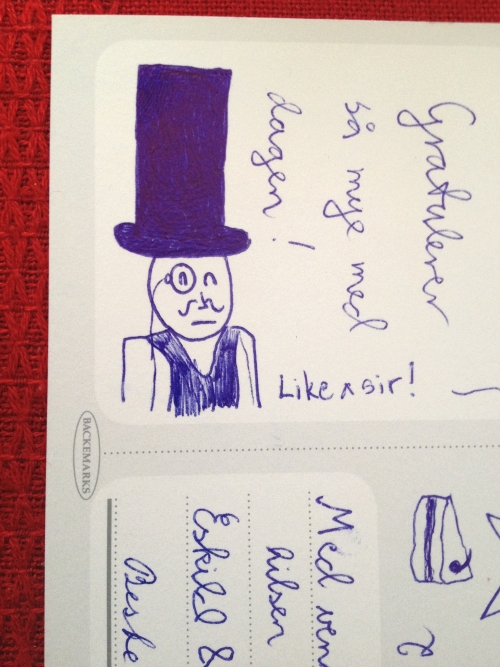 Gratulerer
så mye med
dagen!
Like a sir!
BACKEMARKS
Med ven
hilsen
Eskild &
Beske